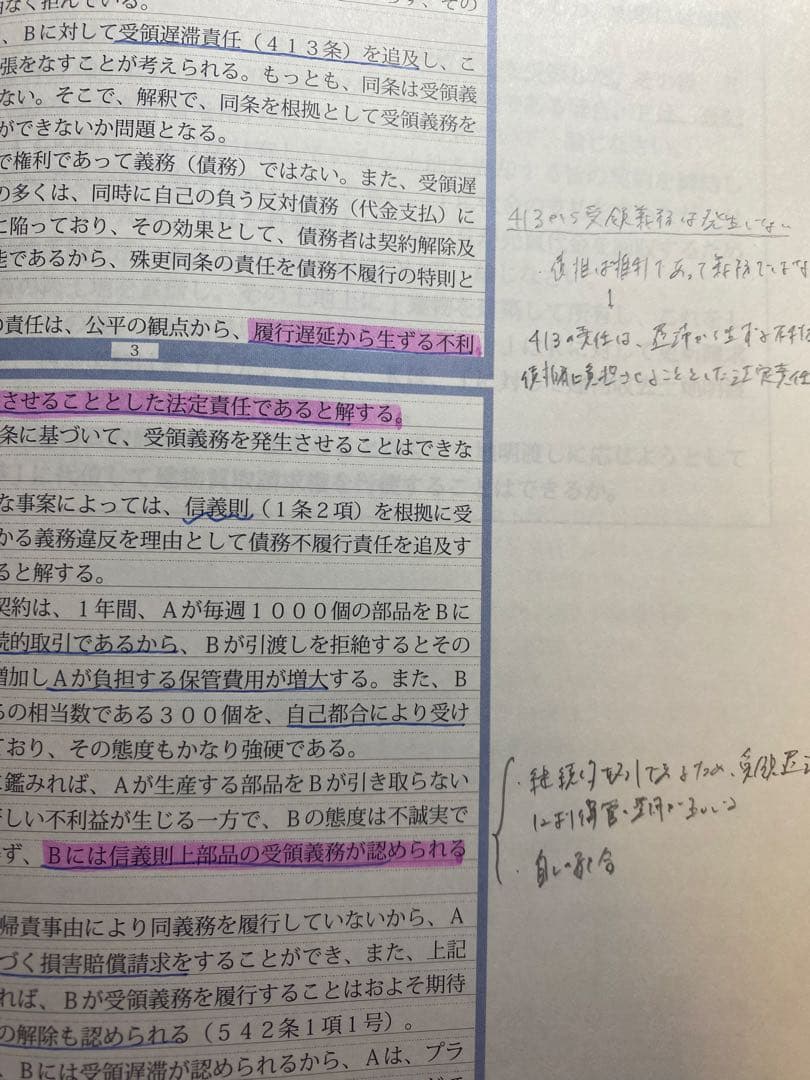 なく拒んている。
、Bに対して受領遅滞責任（４１３条）を追及し、こ
張をなすことが考えられる。もっとも、同条は受領義
ない。そこで、解釈で、同条を根拠として受領義務を
ができないか問題となる。
で権利であって義務（債務）ではない。また、受領遅
の多くは、同時に自己の負う反対債務（代金支払）に
に陥っており、その効果として、債務者は契約解除及
能であるから、殊更同条の責任を債務不履行の特則と
の責任は、公平の観点から、履行遅延から生ずる不利
3
させることとした法定責任であると解する。
条に基づいて、受領義務を発生させることはできな
な事案によっては、信義則（１条２項）を根拠に受
かる義務違反を理由として債務不履行責任を追及す
ると解する。
契約は、１年間、Ａが毎週１０００個の部品をＢに
続的取引であるから、Ｂが引渡しを拒絶するとその
増加しＡが負担する保管費用が増大する。また、Ｂ
らの相当数である３００個を、自己都合により受け
ており、その態度もかなり強硬である。
に鑑みれば、Ａが生産する部品をＢが引き取らない
しい不利益が生じる一方で、Ｂの態度は不誠実で
ず、Ｂには信義則上部品の受領義務が認められる
帰責事由により同義務を履行していないから、Ａ
づく損害賠償請求をすることができ、また、上記
れば、Ｂが受領義務を履行することはおよそ期待
の解除も認められる（５４２条１項１号）。
、Ｂには受領遅滞が認められるから、Ａは、プラ
413から受領義務は発生しない
・債権は権利であって義務ではな
↓
413の責任は、遅滞から生ずる不利
債権者に負担させることとした法定責任
・継続的取引であるため、受領遅
により保管費用が
・自己都合